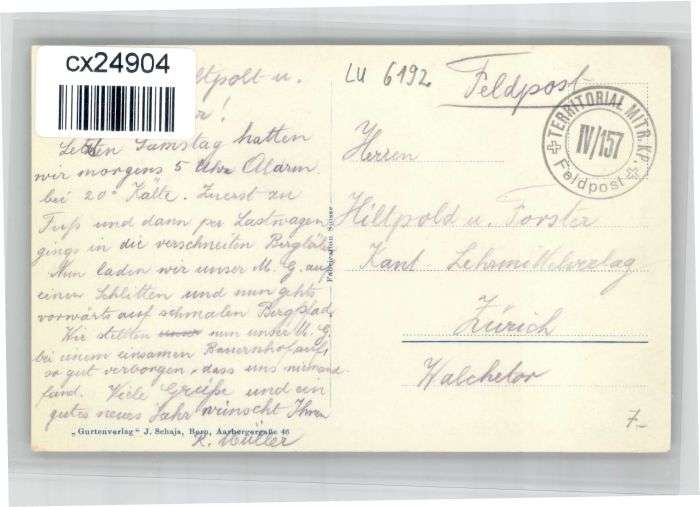 cx24904
ltpolt u.
r!
Letzten Samstag hatten
wir morgens 5 Uhr Alarm
bei 20° Kälte. Zuerst zu
Fuß und dann per Lastwagen
gings in die verschneiten
Nun laden wir unser M. G. auf
einen Schlitten und nun gehts
vorwärts auf schmalen Bergpfad.
Wir stellten unser nun unser M. G.
bei einem einsamen Bauernhof auf,
so gut verborgen, dass uns niemand
fand. Viele Grüße und ein
gutes neues Jahr wünscht Ihnen
K. Müller
„Gurtenverlag" J. Schaja, Bern, Aarbergergaße 46
Fabrication Suisse
LU 6192
Feldpost
TERRITORIAL MITR. KP.
IV/157
Feldpost
Herren
Hiltpold u. Forster
Kant. Lehrmittelverlag
Zürich
Walchetor
7.-